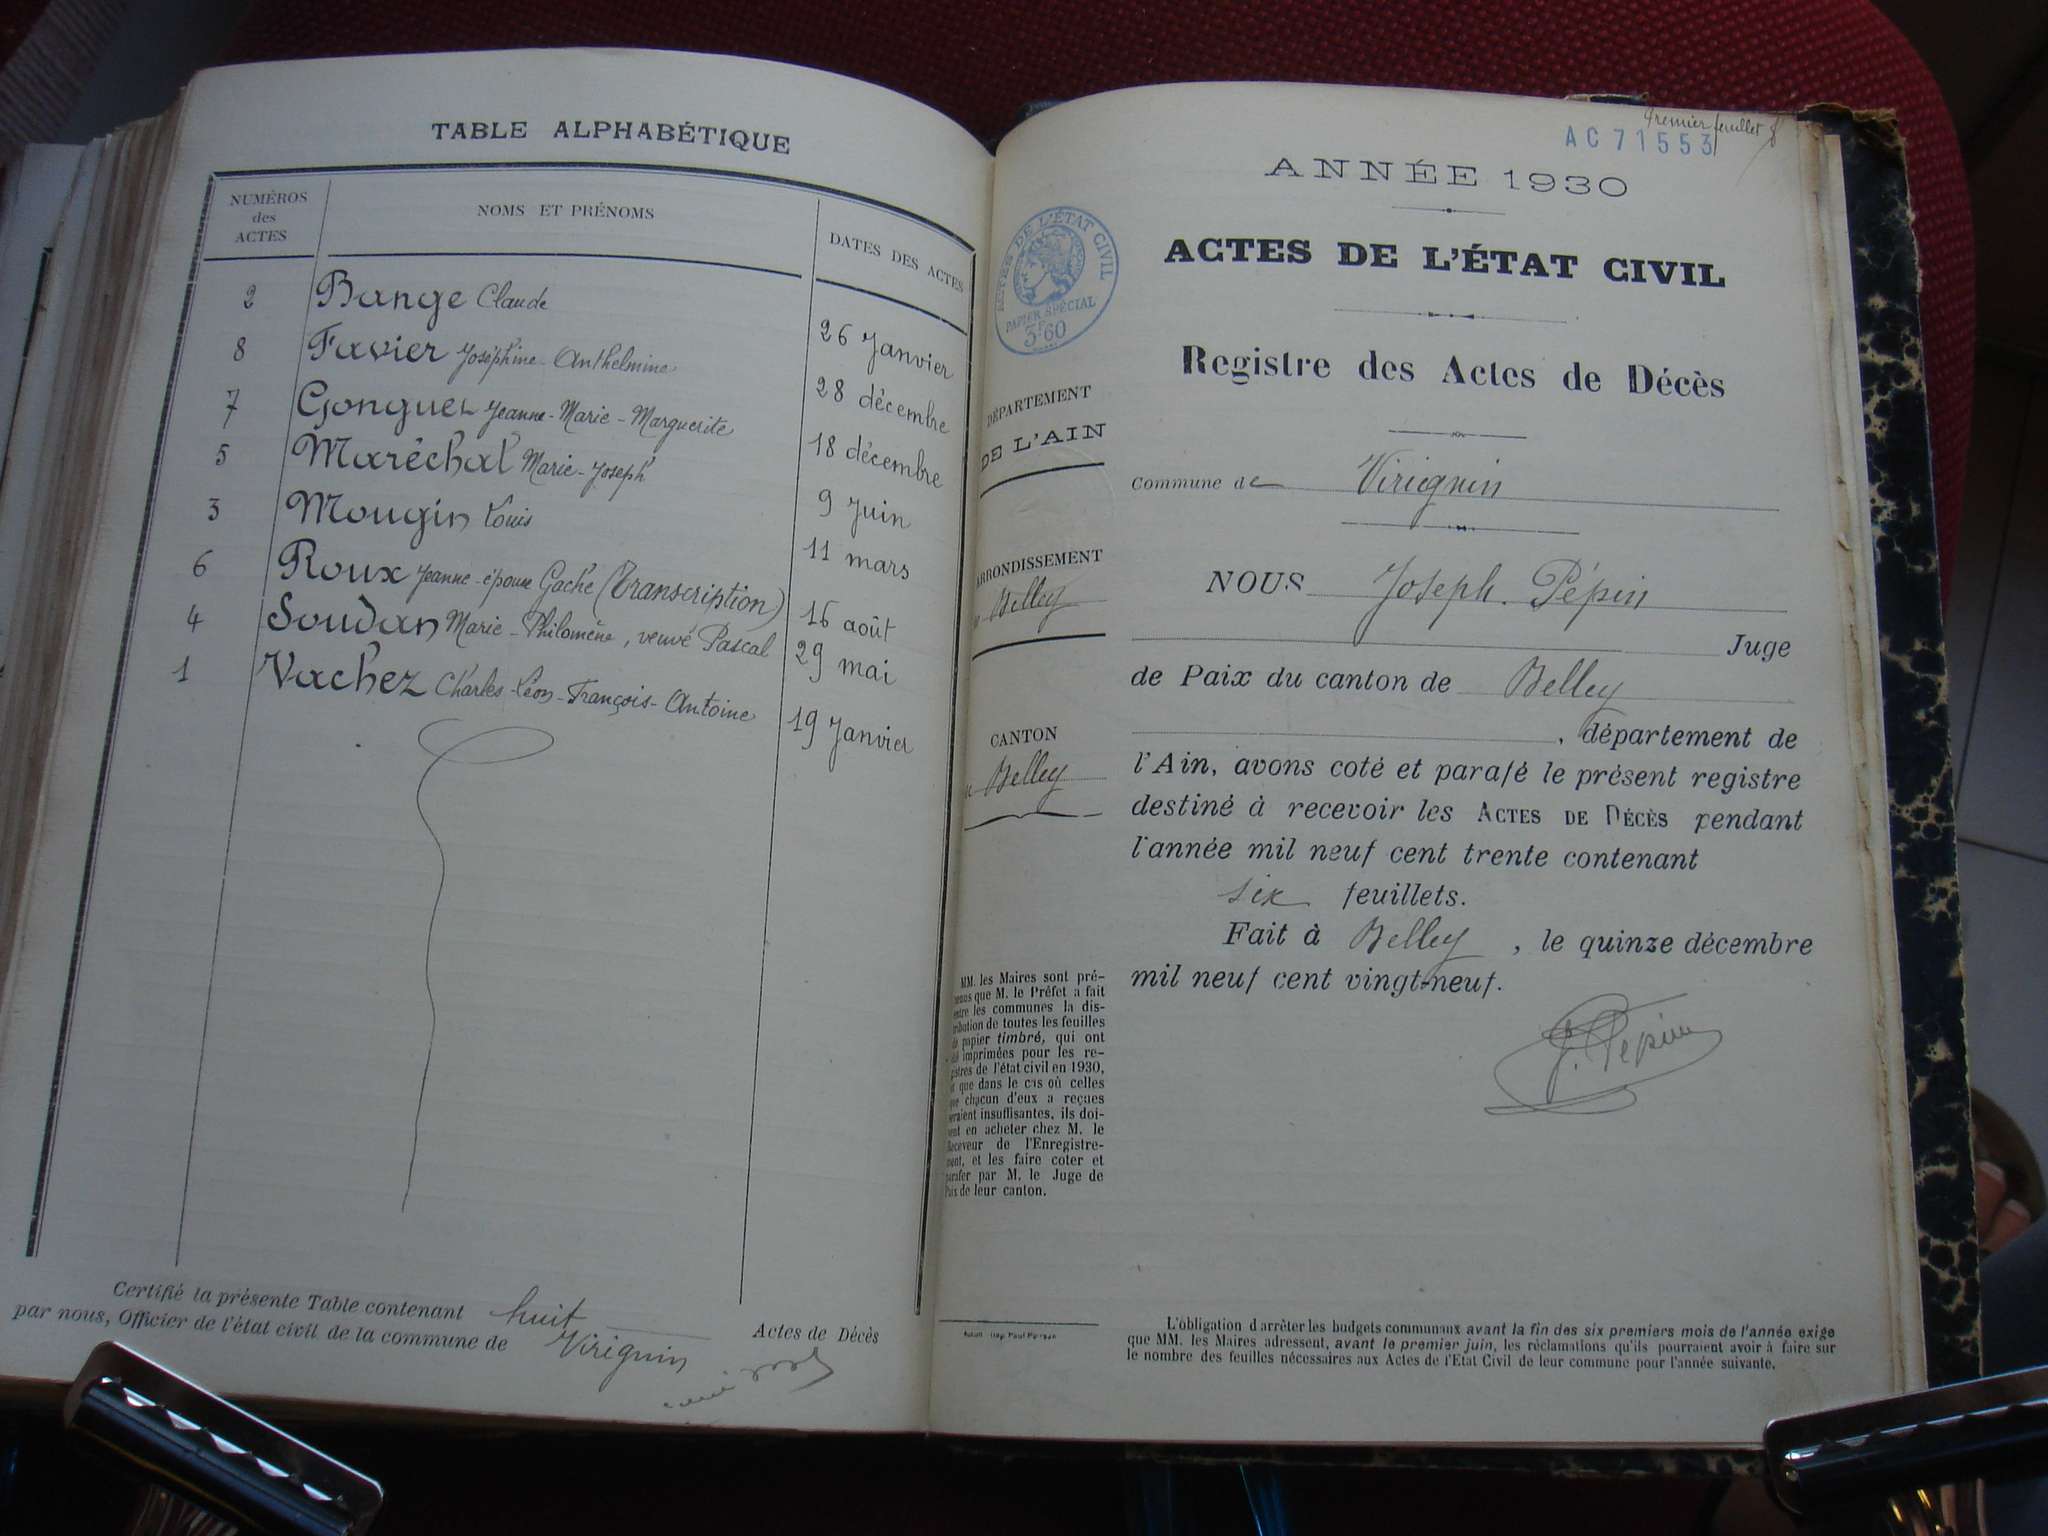 TABLE ALPHABÉTIQUE
NUMÉROS des ACTES
NOMS ET PRÉNOMS
DATES DES ACTES
2 Bange Claude 26 Janvier
8 Favier Joséphine-Anthelmine 28 décembre
7 Gonguet Jeanne-Marie-Marguerite 18 décembre
5 Maréchal Marie-Joseph 9 Juin
3 Mougin Louis 11 mars
6 Roux Jeanne-épouse Gache (Transcription) 16 août
4 Soudan Marie-Philomène, veuve Pascal 29 mai
1 Vachez Charles-Léon-François-Antoine 19 Janvier
Certifié la présente Table contenant huit Actes de Décès
par nous, Officier de l'état civil de la commune de Virignin
Premier feuillet
AC71553
ANNÉE 1930
ACTES DE L'ÉTAT CIVIL
DE L'ÉTAT CIVIL
PAPIER SPÉCIAL
3F60
Registre des Actes de Décès
DÉPARTEMENT
DE L'AIN
Commune de Virignin
ARRONDISSEMENT
Belley
NOUS Joseph Pépin
Juge
de Paix du canton de Belley
, département de
CANTON
Belley
l'Ain, avons coté et parafé le présent registre
destiné à recevoir les ACTES DE DÉCÈS pendant
l'année mil neuf cent trente contenant
six feuillets.
Fait à Belley, le quinze décembre
mil neuf cent vingt-neuf.
J. Pépin
MM. les Maires sont pré-
venus que M. le Préfet a fait
entre les communes la dis-
tribution de toutes les feuilles
de papier timbré, qui ont
été imprimées pour les re-
gistres de l'état civil en 1930,
et que dans le cas où celles
que chacun d'eux a reçues
seraient insuffisantes, ils doi-
vent en acheter chez M. le
Receveur de l'Enregistre-
ment, et les faire coter et
parafer par M. le Juge de
Paix de leur canton.
L'obligation d'arrêter les budgets communaux avant la fin des six premiers mois de l'année exige
que MM. les Maires adressent, avant le premier juin, les réclamations qu'ils pourraient avoir à faire sur
le nombre des feuilles nécessaires aux Actes de l'Etat Civil de leur commune pour l'année suivante.